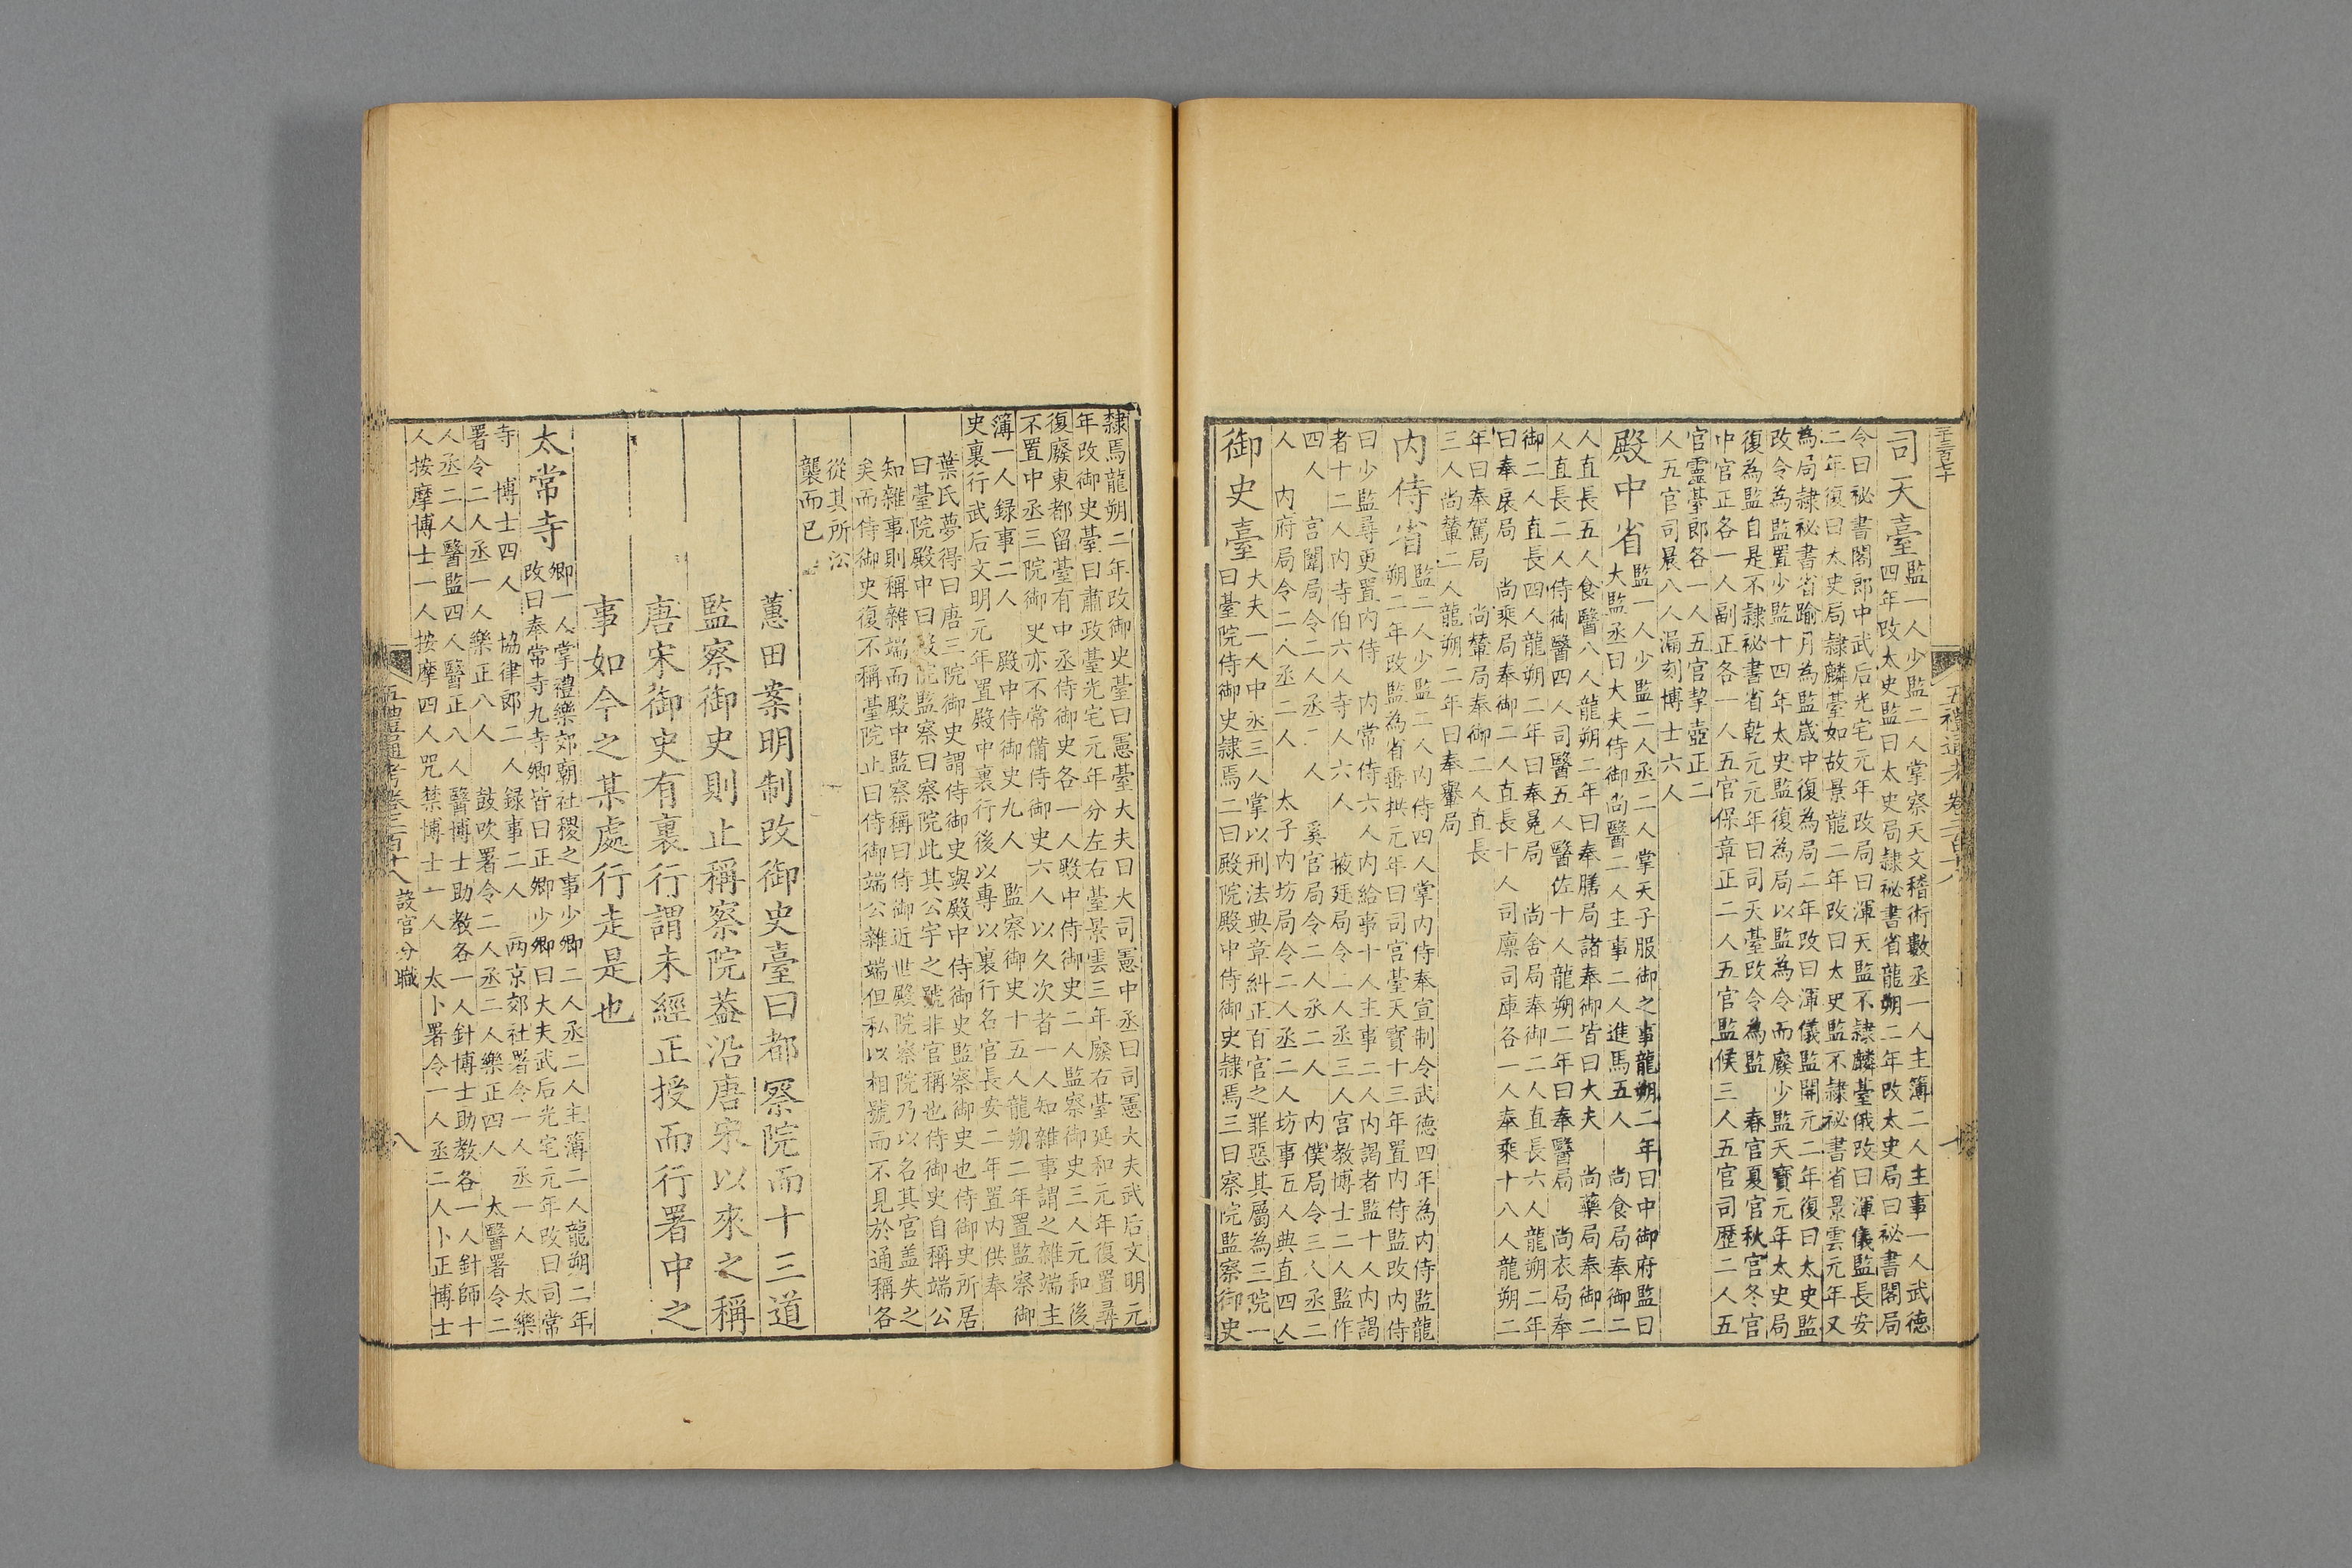 五禮通考卷二百十八
司天臺 監一人少監二人掌察天文稽術數丞一人主簿二人主事一人武德
四年改太史監曰太史局隸祕書省龍朔二年改太史局曰祕書閣局
令曰祕書閣郎中武后光宅元年改局曰渾天監不隸麟臺俄改曰渾儀監長安
二年復曰太史局隸麟臺如故景龍二年改曰太史監不隸祕書省景雲元年又
為局隸祕書省踰月為監歲中復為局二年改曰渾儀監開元二年復曰太史監
改令為監置少監十四年太史監復為局以監為令而廢少監天寶元年太史局
復為監自是不隸祕書省乾元元年曰司天臺改令為監 春官夏官秋官冬官
中官正各一人副正各一人五官保章正二人五官監候三人五官司歷二人五
官靈臺郎各一人五官挈壺正二
人五官司晨八人漏刻博士六人
殿中省 監一人少監二人丞二人掌天子服御之事龍朔二年曰中御府監曰
大監丞曰大夫侍御尚醫二人主事二人進馬五人 尚食局奉御二
人直長五人食醫八人龍朔二年曰奉膳局諸奉御皆曰大夫 尚藥局奉御二
人直長二人侍御醫四人司醫五人醫佐十人龍朔二年曰奉醫局 尚衣局奉
御二人直長四人龍朔二年曰奉冕局 尚舍局奉御二人直長六人龍朔二年
曰奉扆局 尚乘局奉御二人直長十人司廩司庫各一人奉乘十八人龍朔二
年曰奉駕局 尚輦局奉御二人直長
三人尚輦二人龍朔二年曰奉轝局
內侍省 監二人少監二人內侍四人掌內侍奉宣制令武德四年為內侍監龍
朔二年改監為省垂拱元年曰司宮臺天寶十三年置內侍監改內侍
曰少監尋更置內侍 內常侍六人內給事十人主事二人內謁者監十人內謁
者十二人內寺伯六人寺人六人 掖廷局令二人丞三人宮教博士二人監作
四人 宮闈局令二人丞二人 奚官局令二人丞二人 內僕局令三人丞二
人 內府局令二人丞二人 太子內坊局令二人丞二人坊事五人典直四人
御史臺 大夫一人中丞三人掌以刑法典章糾正百官之罪惡其屬為三院一
曰臺院侍御史隸焉二曰殿院殿中侍御史隸焉三曰察院監察御史
隸焉龍朔二年改御史臺曰憲臺大夫曰大司憲中丞曰司憲大夫武后文明元
年改御史臺曰肅政臺光宅元年分左右臺景雲三年廢右臺延和元年復置尋
復廢東都留臺有中丞侍御史各一人殿中侍御史二人監察御史三人元和後
不置中丞三院御史亦不常備侍御史六人以久次者一人知雜事謂之雜端主
簿一人錄事二人 殿中侍御史九人 監察御史十五人龍朔二年置監察御
史裏行武后文明元年置殿中裏行後以專以裏行名官長安二年置內供奉
葉氏夢得曰唐三院御史謂侍御史與殿中侍御史監察御史也侍御史所居
曰臺院殿中曰殿院監察曰察院此其公宇之號非官稱也侍御史自稱端公
知雜事則稱雜端而殿中監察稱曰侍御近世殿院察院乃以名其官蓋失之
矣而侍御史復不稱臺院止曰侍御端公雜端但私以相號而不見於通稱各
從其所㳂
襲而已
蕙田案明制改御史臺曰都察院而十三道
監察御史則止稱察院蓋沿唐宋以來之稱
唐宋御史有裏行謂未經正授而行署中之
事如今之某處行走是也
太常寺 卿一人掌禮樂郊廟社稷之事少卿二人丞二人主簿二人龍朔二年
改曰奉常寺九寺卿皆曰正卿少卿曰大夫武后光宅元年改曰司常
寺 博士四人 協律郎二人錄事二人 兩京郊社署令一人丞一人 太樂
署令二人丞一人樂正八人 鼓吹署令二人丞二人樂正四人 太醫署令二
人丞二人醫監四人醫正八人醫博士助教各一人針博士助教各一人針師十
人按摩博士一人按摩四人咒禁博士一人 太卜署令一人丞二人卜正博士
五禮通考卷二百十八 設官分職 八